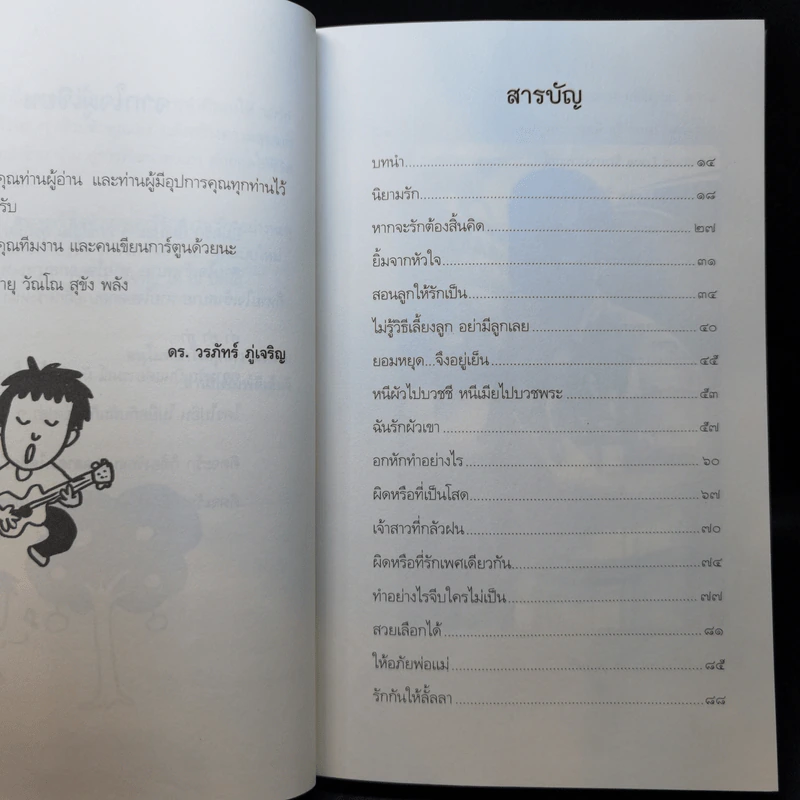 คุณท่านผู้อ่าน และท่านผู้มีอุปการคุณทุกท่านไว้
รับ
คุณทีมงาน และคนเขียนการ์ตูนด้วยนะ
ายุ วัณโณ สุขัง พลัง
ดร. วรภัทร์ ภู่เจริญ
สารบัญ
บทนำ....................๑๔
นิยามรัก....................๑๘
หากจะรักต้องสิ้นคิด....................๒๗
ยิ้มจากหัวใจ....................๓๑
สอนลูกให้รักเป็น....................๓๔
ไม่รู้วิธีเลี้ยงลูก อย่ามีลูกเลย....................๔๐
ยอมหยุด...จึงอยู่เย็น....................๔๕
หนีผัวไปบวชชี หนีเมียไปบวชพระ....................๕๓
ฉันรักผัวเขา....................๕๗
อกหักทำอย่างไร....................๖๐
ผิดหรือที่เป็นโสด....................๖๗
เจ้าสาวที่กลัวฝน....................๗๐
ผิดหรือที่รักเพศเดียวกัน....................๗๔
ทำอย่างไรจีบใครไม่เป็น....................๗๗
สวยเลือกได้....................๘๑
ให้อภัยพ่อแม่....................๘๕
รักกันให้ลั้ลลา....................๘๘